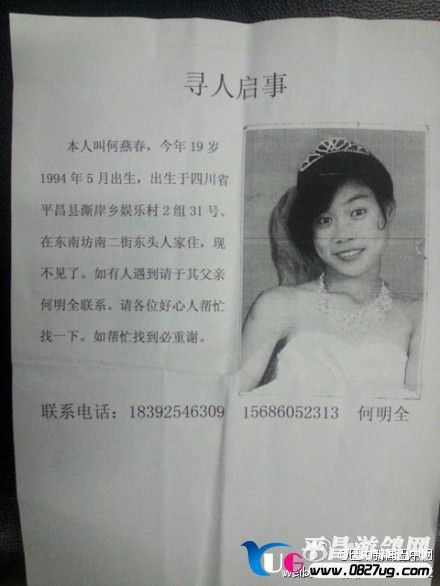 寻人启事
本人叫何燕春，今年 19 岁
1994 年 5 月出生，出生于四川省
平昌县澌岸乡娱乐村 2 组 31 号。
在东南坊南二街东头人家住，现
不见了。如有人遇到请于其父亲
何明全联系。请各位好心人帮忙
找一下。如帮忙找到必重谢。
联系电话：18392546309 15686052313 何明全
平昌游鸽网
YUG
www.0827ug.com